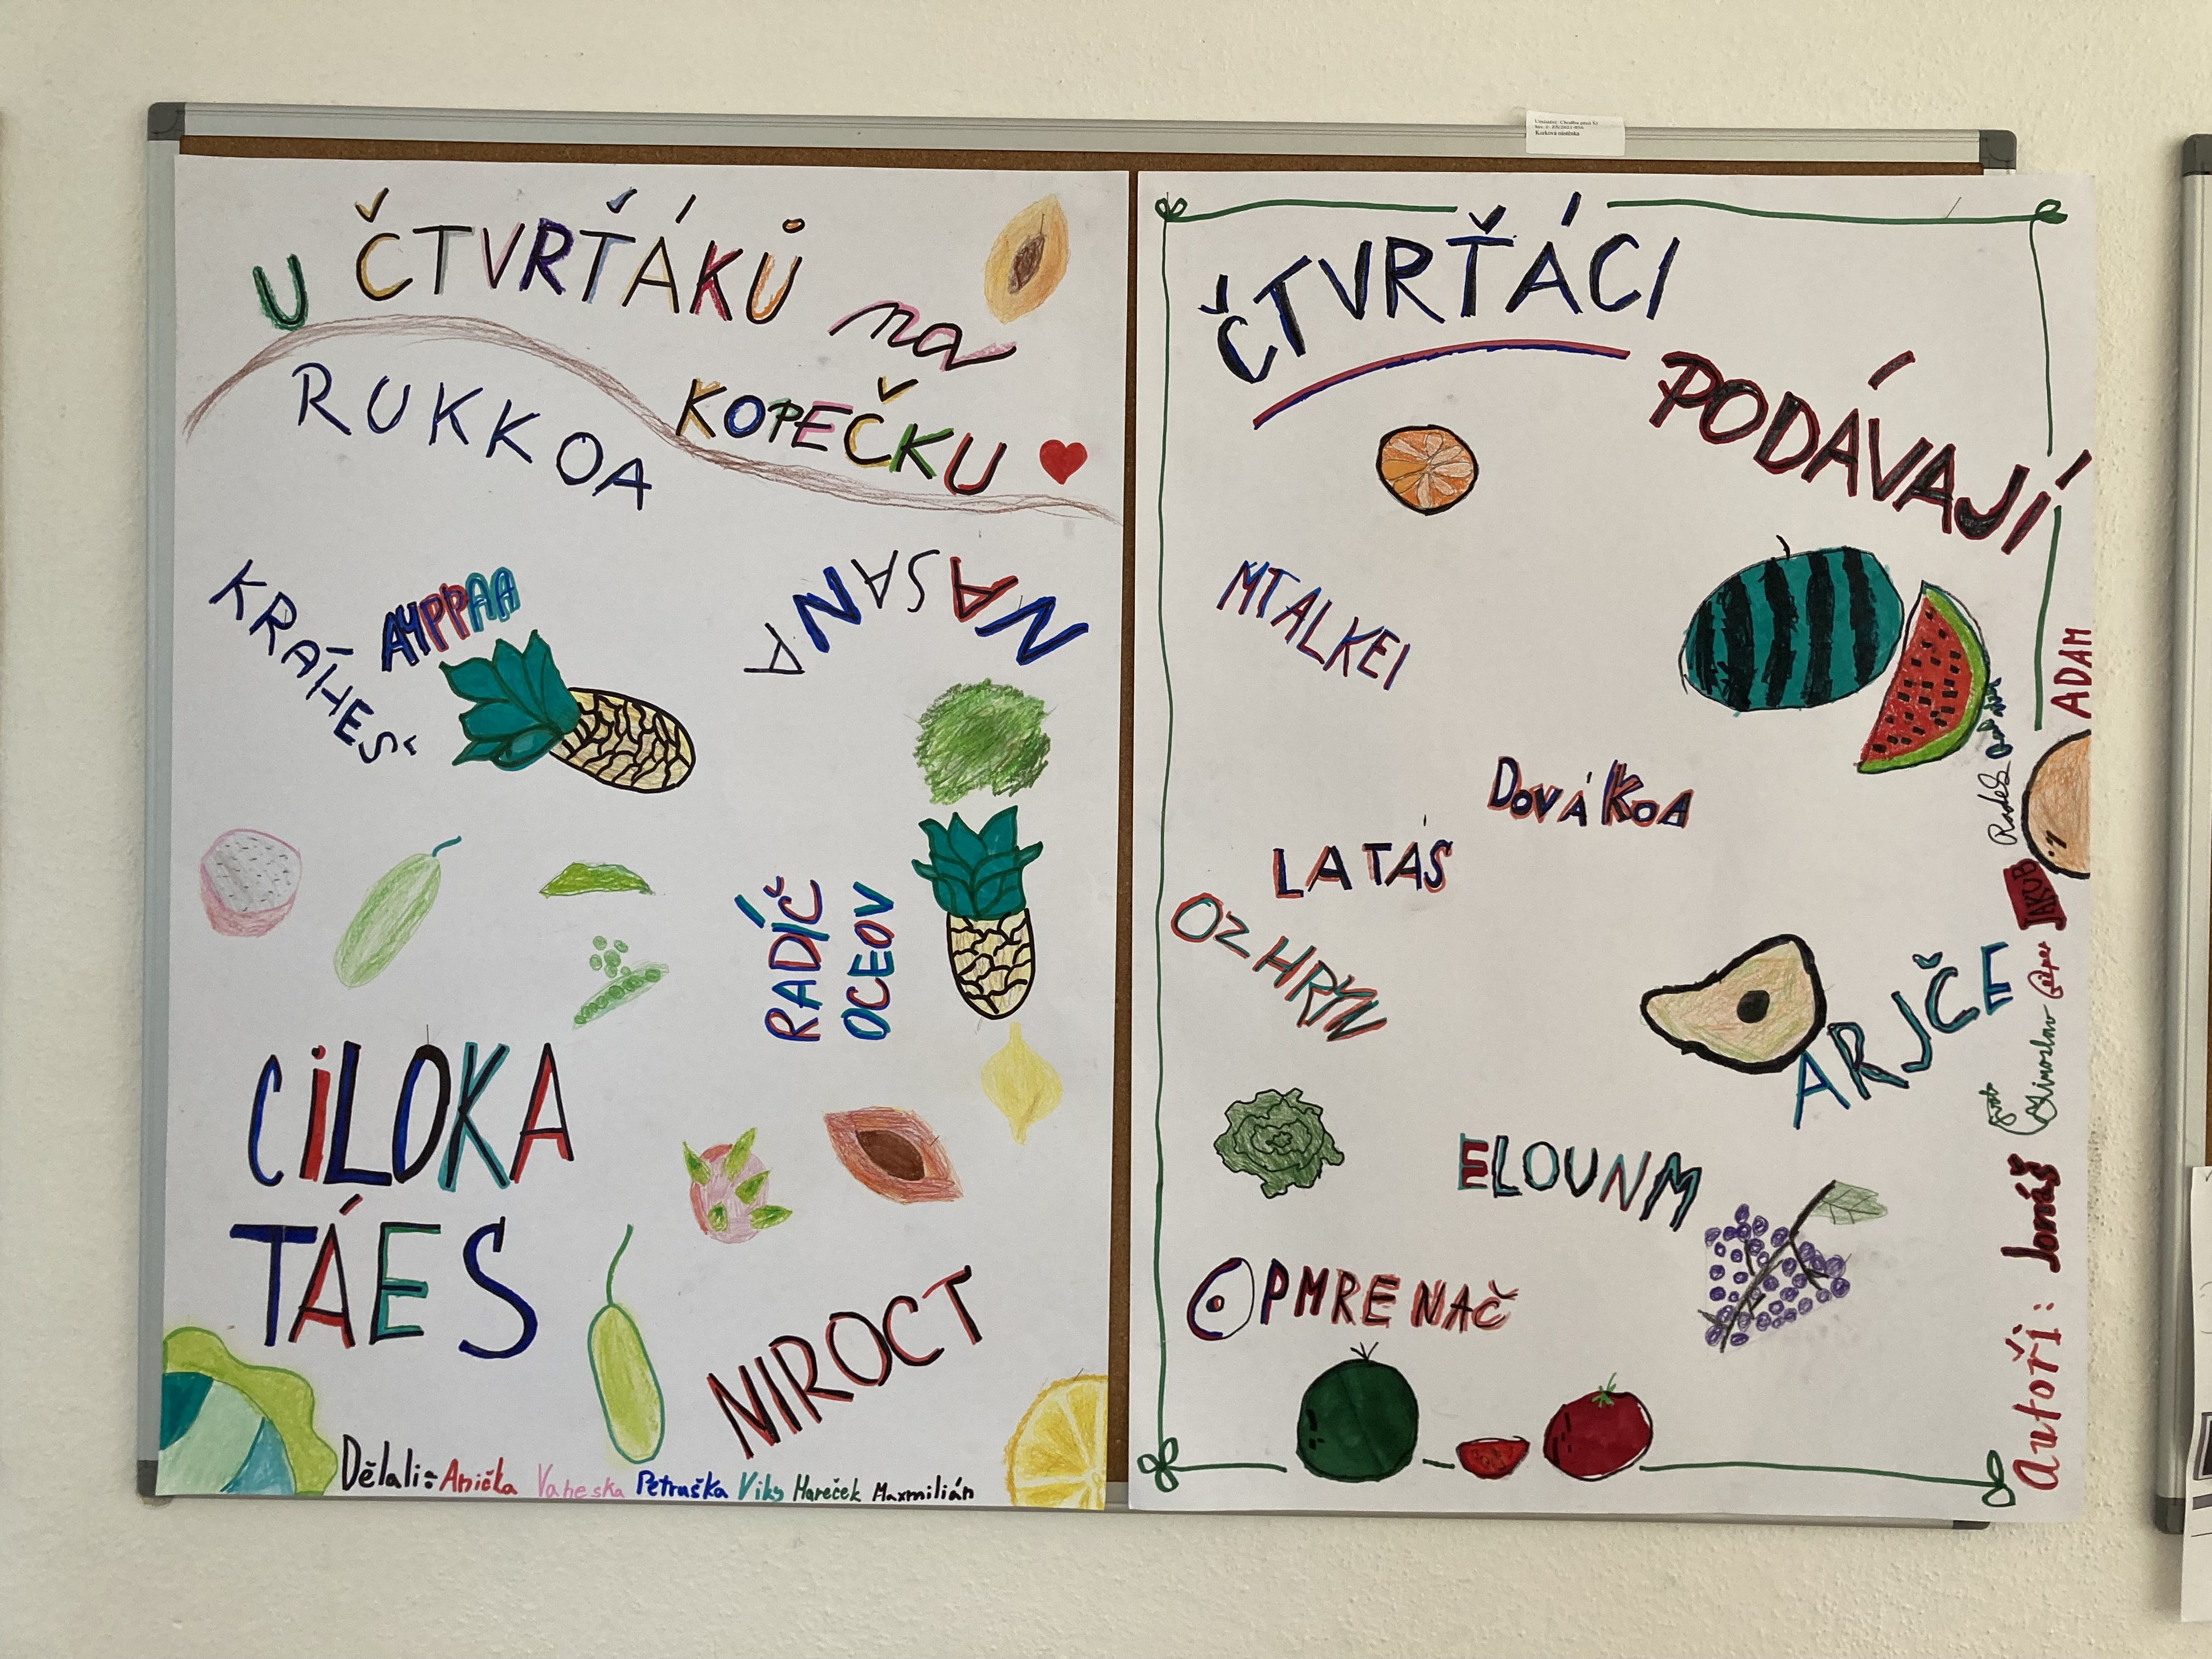 U ČTVRŤÁKŮ na
KOPEČKU
RUKKOA
KRÁHEŠ
AYPPAA
NASANA
RADÍČ
OCEOV
CILOKA
TÁES
NIROCT
Dělali: Anička Vaneska Petruška Viky Mareček Maxmilián
ČTVRŤÁCI
PODÁVAJÍ
MTALKEI
DOVÁKOA
LATAS
OZHRYN
ARJČE
ELOUNM
PMRENAČ
Autoři: Jonáš
JAKUB
Radek
ADAM
Korková nástěnka